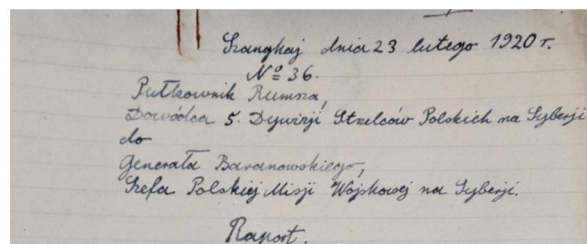 Szanghaj dnia 23 lutego 1920 r.
Nº 36.
Pułkownik Rumsza,
Dowódca 5. Dywizji Strzelców Polskich na Syberji
do
Generała Baranowskiego,
Szefa Polskiej Misji Wojskowej na Syberji.
Raport.